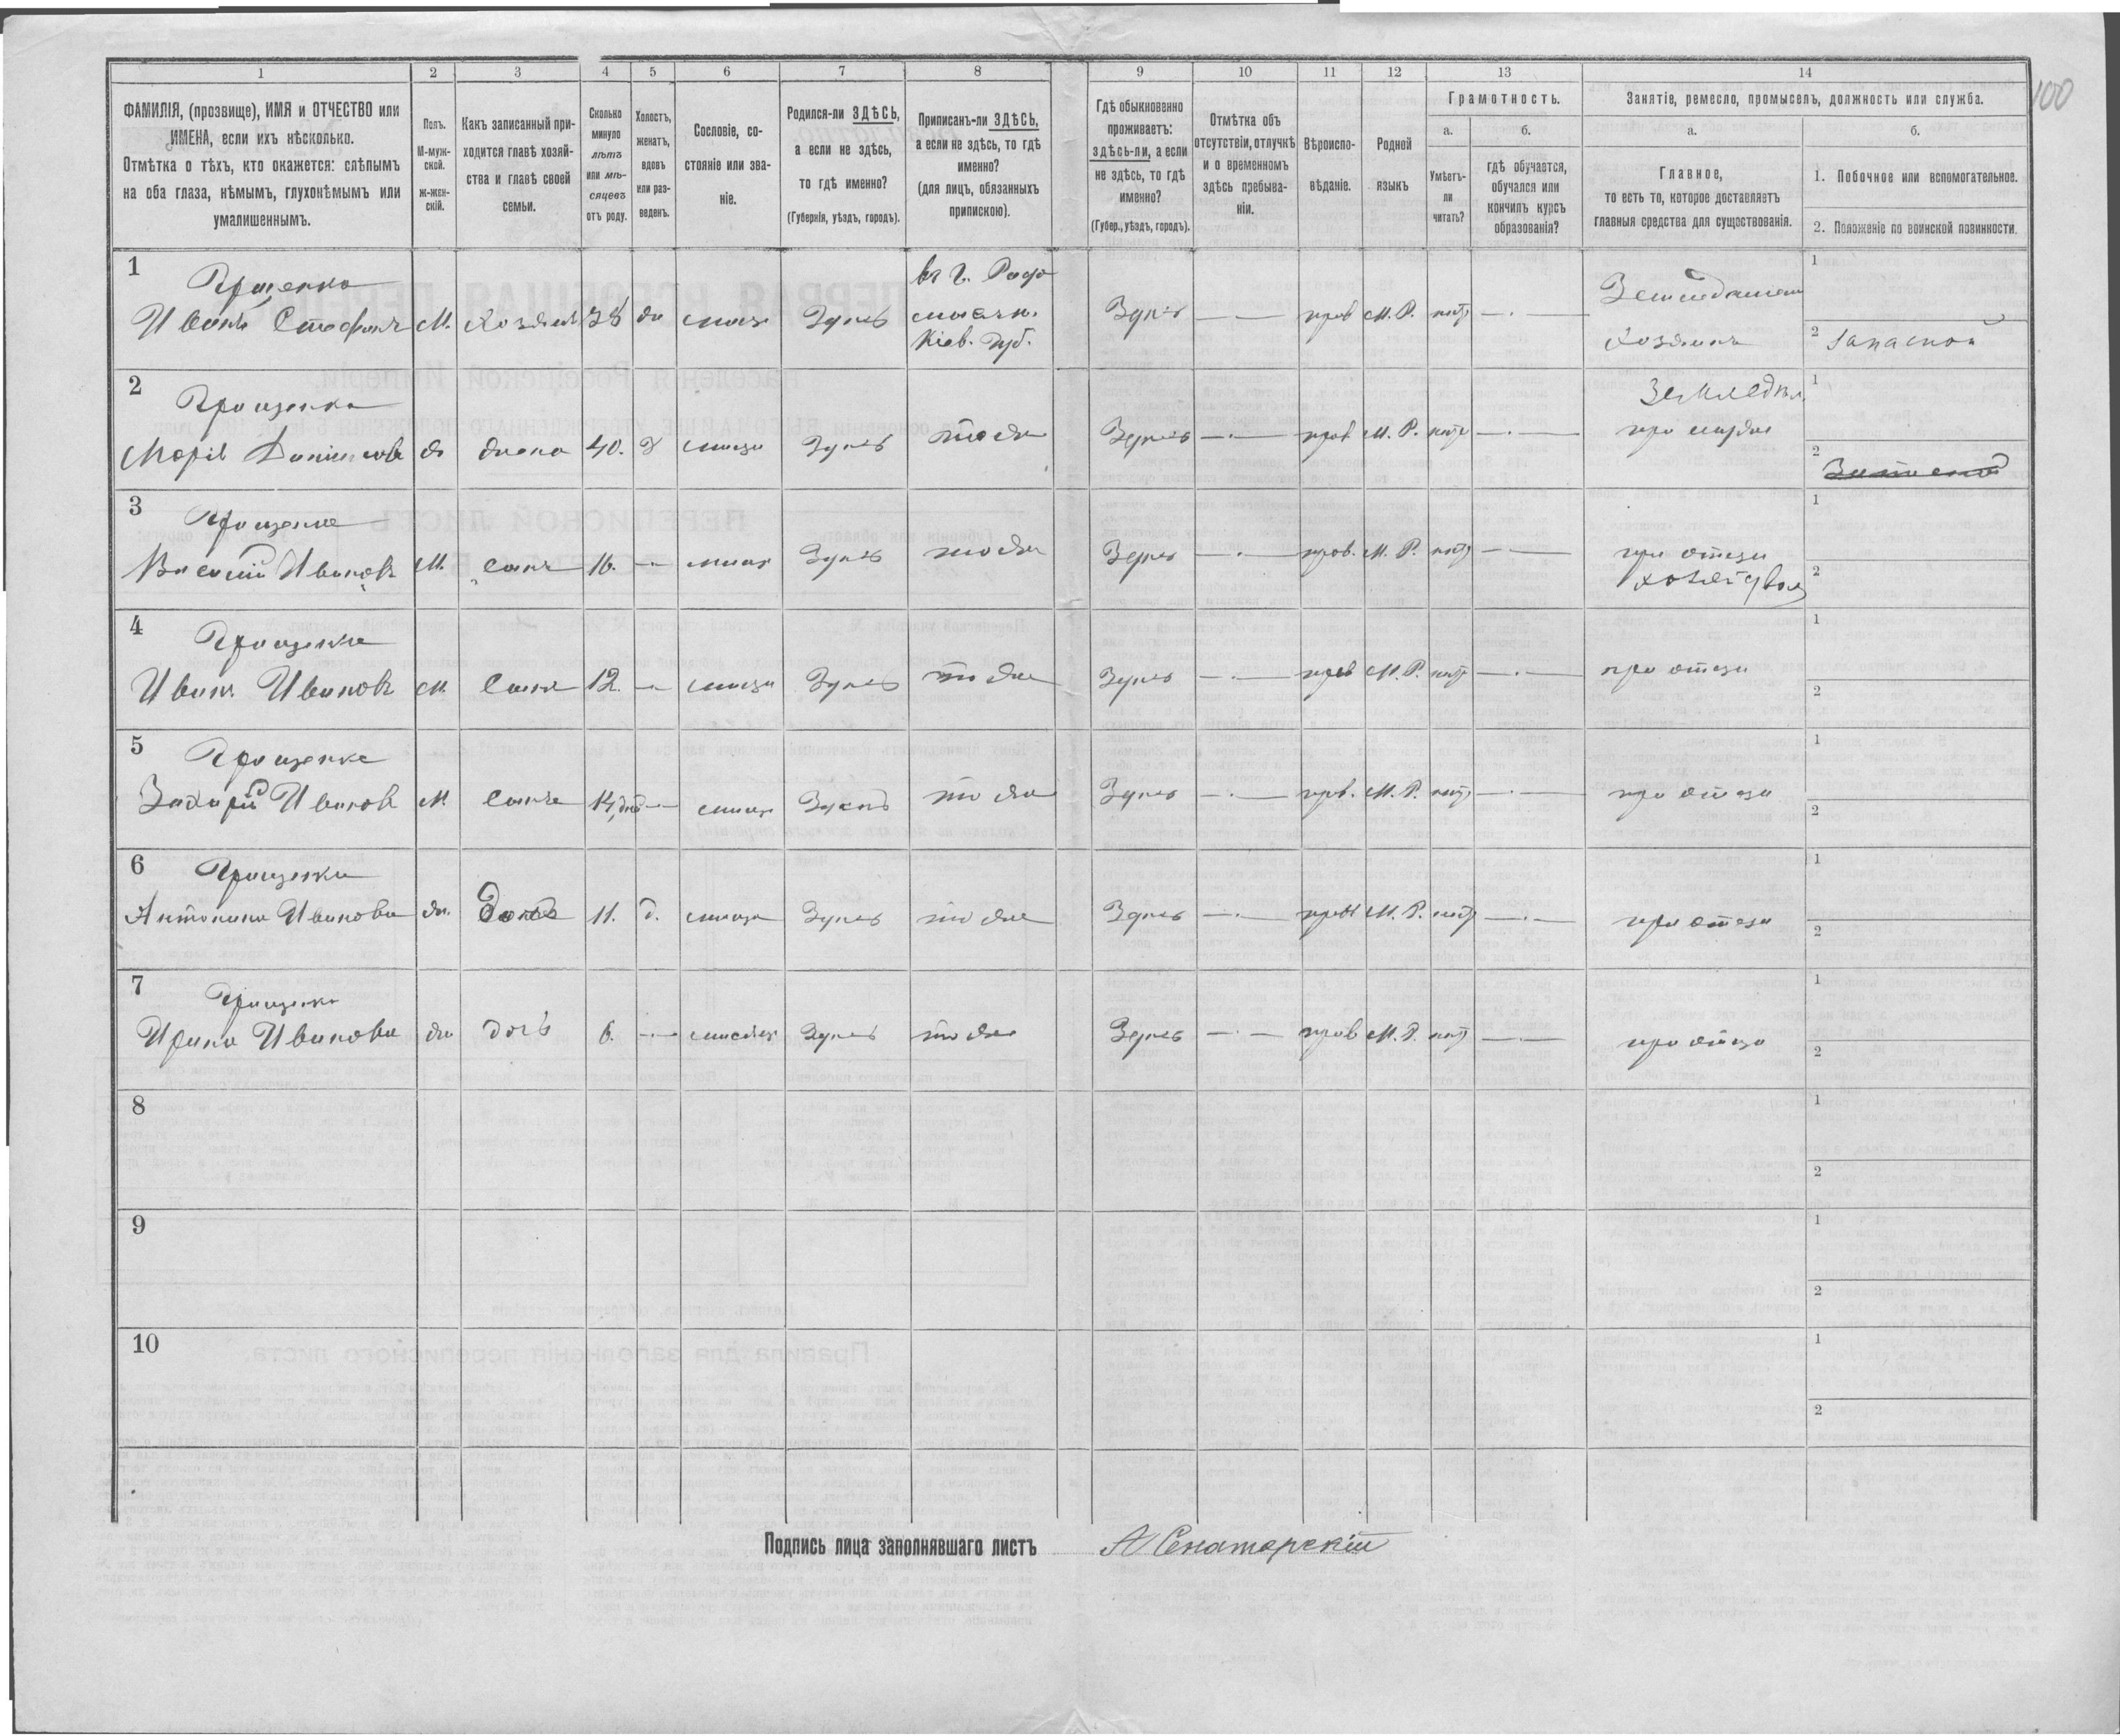 1 2 3 4 5 6 7 8 9 10 11 12 13 14
100
ФАМИЛІЯ, (прозвище), ИМЯ и ОТЧЕСТВО или
ИМЕНА, если ихъ нѣсколько.
Отмѣтка о тѣхъ, кто окажется: слѣпымъ
на оба глаза, нѣмымъ, глухонѣмымъ или
умалишеннымъ.
Полъ.
М-муж-
ской.
ж-жен-
скій.
Какъ записанный при-
ходится главѣ хозяй-
ства и главѣ своей
семьи.
Сколько
минуло
лѣтъ
или мѣ-
сяцевъ
отъ роду.
Холостъ,
женатъ,
вдовъ
или раз-
веденъ.
Сословіе, со-
стояніе или зва-
ніе.
Родился-ли ЗДѢСЬ,
а если не здѣсь,
то гдѣ именно?
(Губернія, уѣздъ, городъ).
Приписанъ-ли ЗДѢСЬ,
а если не здѣсь, то гдѣ
именно?
(для лицъ, обязанныхъ
припискою).
Гдѣ обыкновенно
проживаетъ:
здѣсь-ли, а если
не здѣсь, то гдѣ
именно?
(Губер., уѣздъ, городъ).
Отмѣтка объ
отсутствіи, отлучкѣ
и о временномъ
здѣсь пребыва-
ніи.
Вѣроиспо-
вѣданіе.
Родной
языкъ
Грамотность.
а.
Умѣетъ-
ли
читать?
б.
гдѣ обучается,
обучался или
кончилъ курсъ
образованія?
Занятіе, ремесло, промыселъ, должность или служба.
а.
Главное,
то есть то, которое доставляетъ
главныя средства для существованія.
б.
1. Побочное или вспомогательное.
2. Положеніе по воинской повинности.
1
Проценко
Иванъ Стефан М. Хозяинъ 38 ж мѣщ Здесь
въ г. Радо
мысль
Кіев. Губ.
Здесь — прав М. Р. нѣтъ —
Хозяинъ
1
2 Запасной
2
Проценко
Марія ж жена 40. з мѣщ Здесь то же Здесь — прав М. Р. нѣтъ —
Земледѣл.
при мужѣ
1
2
3
Проценко
Василій Иванов М. сынъ 16. — мѣщ Здесь то же Здесь — прав. М. Р. нѣтъ —
при отцѣ
1
2
4
Проценко
Иванъ Иванов М. Сынъ 12. — мѣщ Здесь то же Здесь — прав М. Р. нѣтъ —
при отцѣ
1
2
5
Проценко
Захарій Иванов М. Сынъ — мѣщ Здесь то же Здесь — прав. М. Р. нѣтъ —
при отцѣ
1
2
6
Проценко
Антонина Иванова ж. Дочь 11. д. мѣщ Здесь то же Здесь — прав М. Р. нѣтъ —
при отцѣ
1
2
7
Проценко
Ирина Иванова ж дочь 6. — мѣщ Здесь то же Здесь — прав М. Р. нѣтъ —
при отцѣ
1
2
8
1
2
9
1
2
10
1
2
Подпись лица заполнявшаго листъ А Сенаторскій